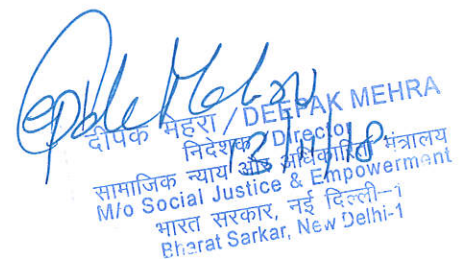 दीपक मेहरा / DEEPAK MEHRA
निदेशक / Director
सामाजिक न्याय और अधिकारिता मंत्रालय
M/o Social Justice & Empowerment
भारत सरकार, नई दिल्ली-1
Bharat Sarkar, New Delhi-1